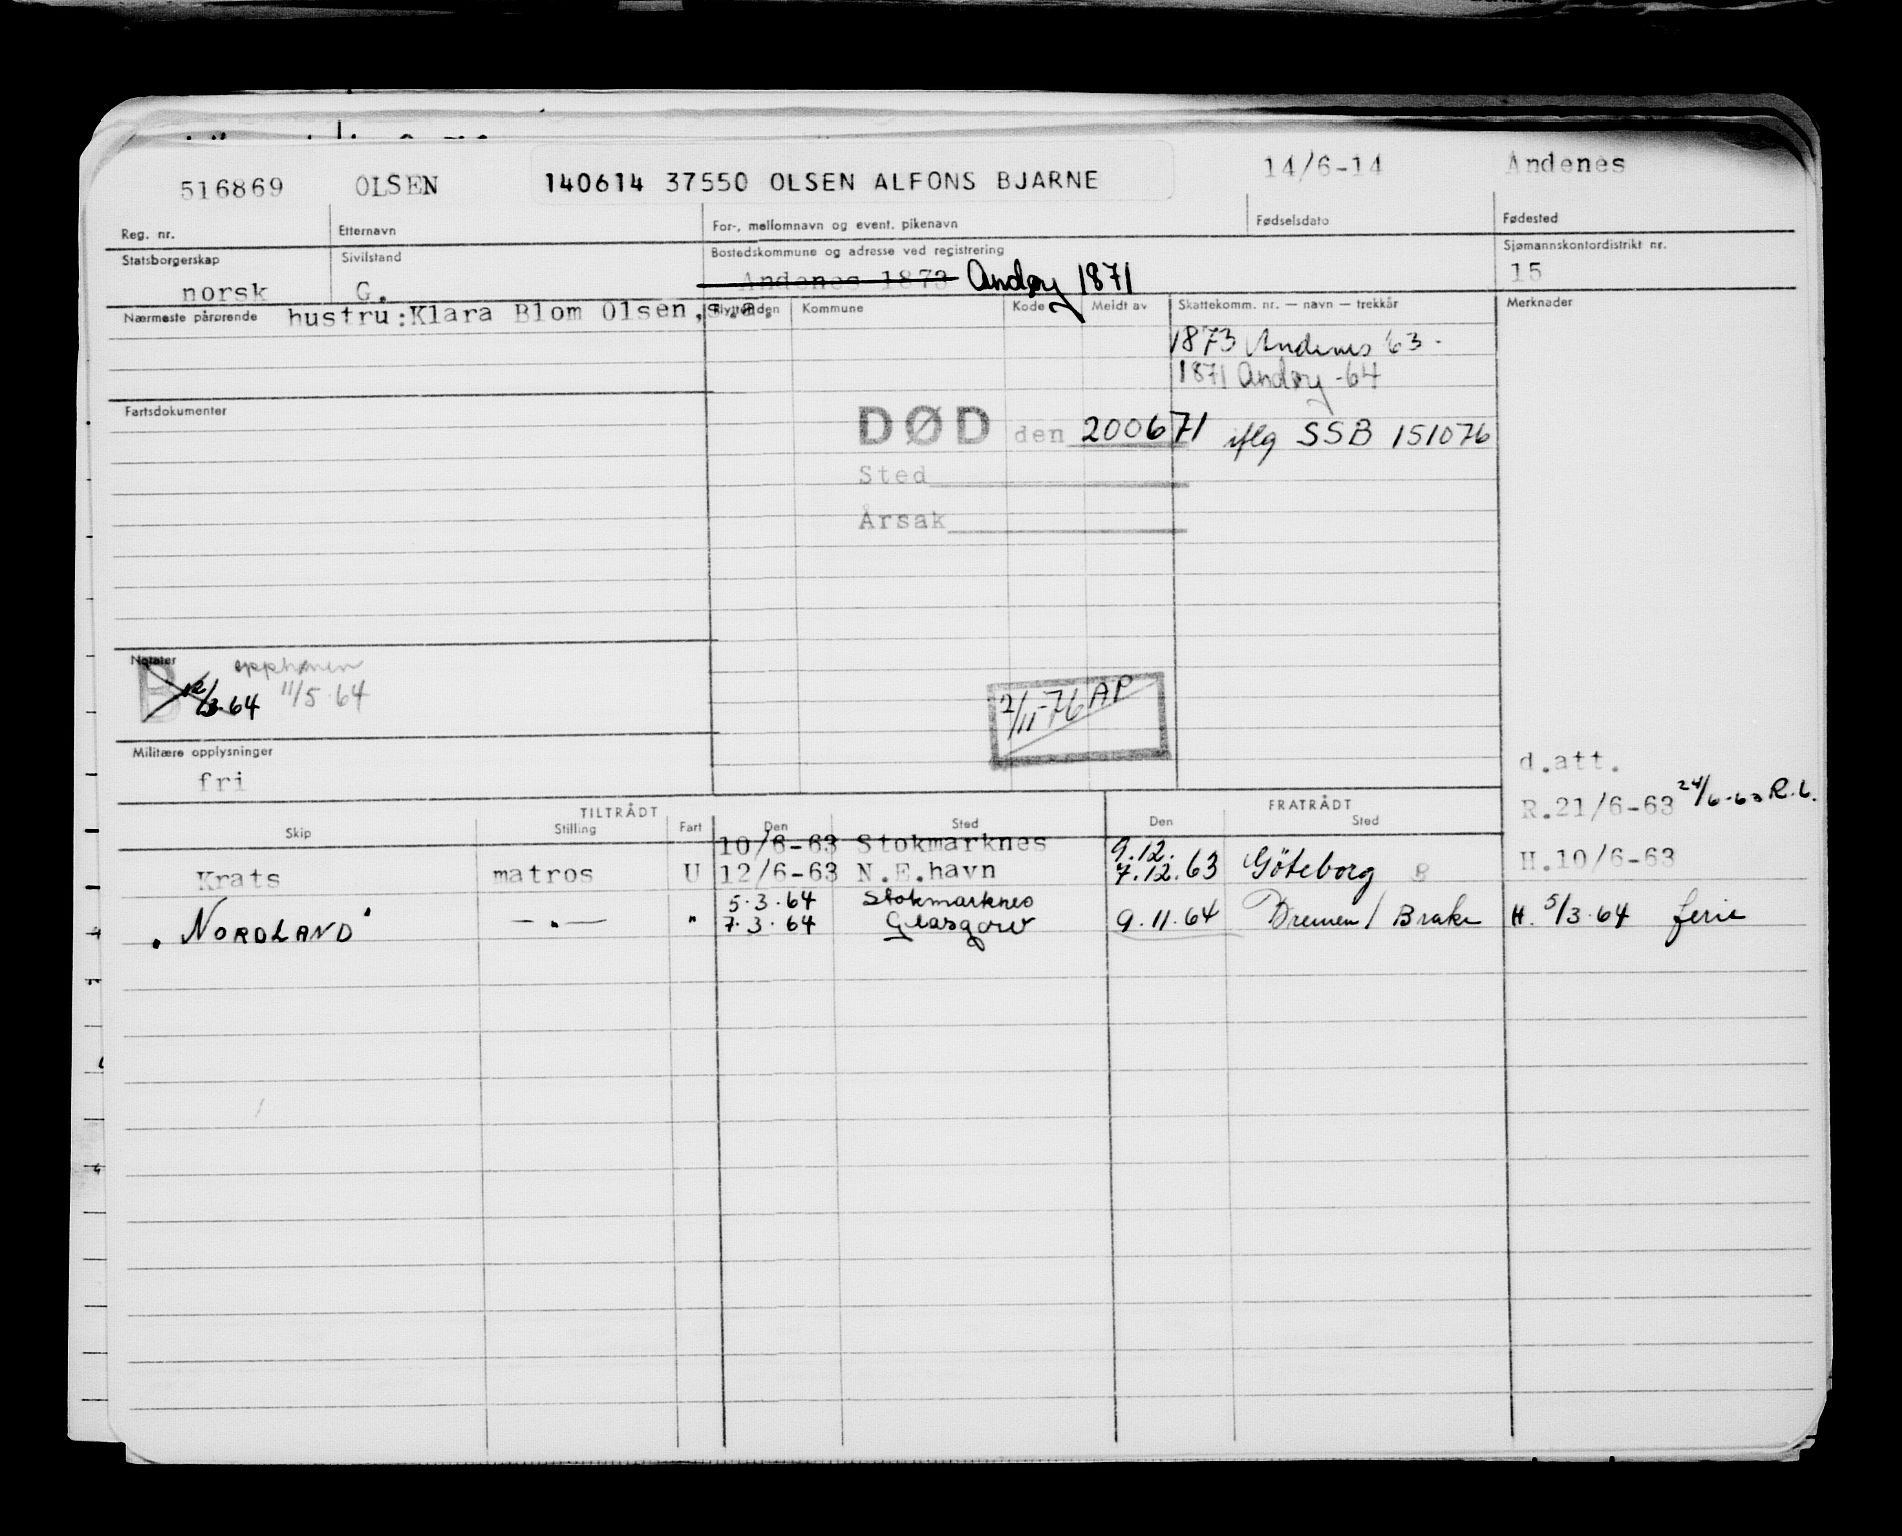 516869 OLSEN 140614 37550 OLSEN ALFONS BJARNE 14/6-14 Andenes
Reg. nr. Etternavn For-, mellomnavn og event. pikenavn Fødselsdato Fødested
Statsborgerskap Sivilstand Bostedskommune og adresse ved registrering Sjømannskontordistrikt nr.
norsk G. Andenes 1873 Andøy 1871 15
Nærmeste pårørende hustru:Klara Blom Olsen,s.a. Kommune Kode Meldt av Skattekomm. nr. — navn — trekkår Merknader
1873 Andenes '63.
1871 Andøy -64
Fartsdokumenter
DØD den 200671 iflg SSB 151076
Sted
Årsak
Notater
B 12/3.64 11/5.64
2/11-76 AP
Militære opplysninger
fri
d.att.
R.21/6-63 24/6-63 R.6.
TILTRÅDT FRATRÅDT
Skip Stilling Fart Den Sted Den Sted
10/6-63 Stokmarknes 9.12.
Krats matros U 12/6-63 N.E.havn 7.12.63 Göteborg B H.10/6-63
5.3.64 Stokmarknes
"NORDLAND" —"— " 7.3.64 Glasgow 9.11.64 Bremen/Brake H. 5/3.64 ferie